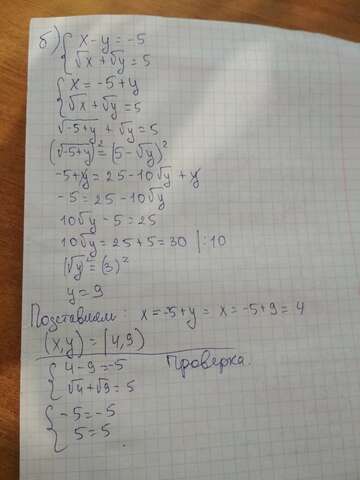 б) { x-y = -5
√x + √y = 5
{ x = -5+y
√x + √y = 5
√-5+y + √y = 5
(√-5+y)² = (5-√y)²
-5+y = 25-10√y + y
-5 = 25-10√y
10√y - 5 = 25
10√y = 25+5 = 30 | :10
(√y)² = (3)²
y = 9
Подставляем: x = -5+y = x = -5+9 = 4
(x,y) = (4,9)
{ 4-9 = -5 Проверка.
√4 + √9 = 5
{ -5 = -5
5 = 5